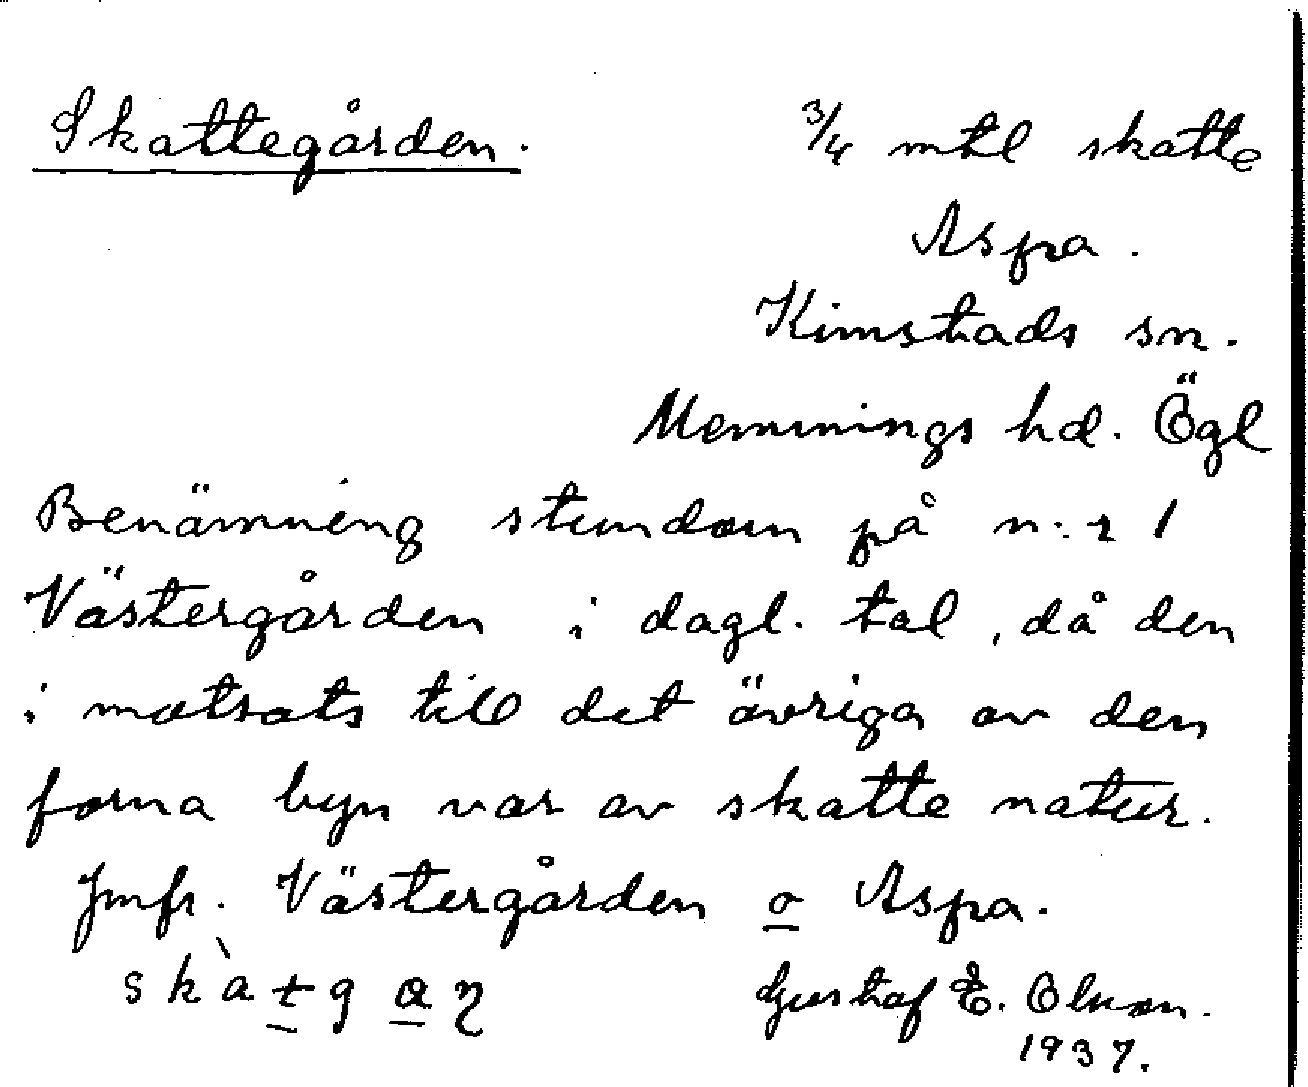 Skattegården. 3/4 mtl skatte
Aspa.
Kimstads sn.
Memmings hd. Ögl
Benämning stundom på n:r 1
Västergården i dagl. tal, då den
i motsats till det övriga av den
forna byn var av skatte natur.
Jmfr. Västergården o Aspa.
skàtgaŋ Gustaf E. Olsson.
1937.